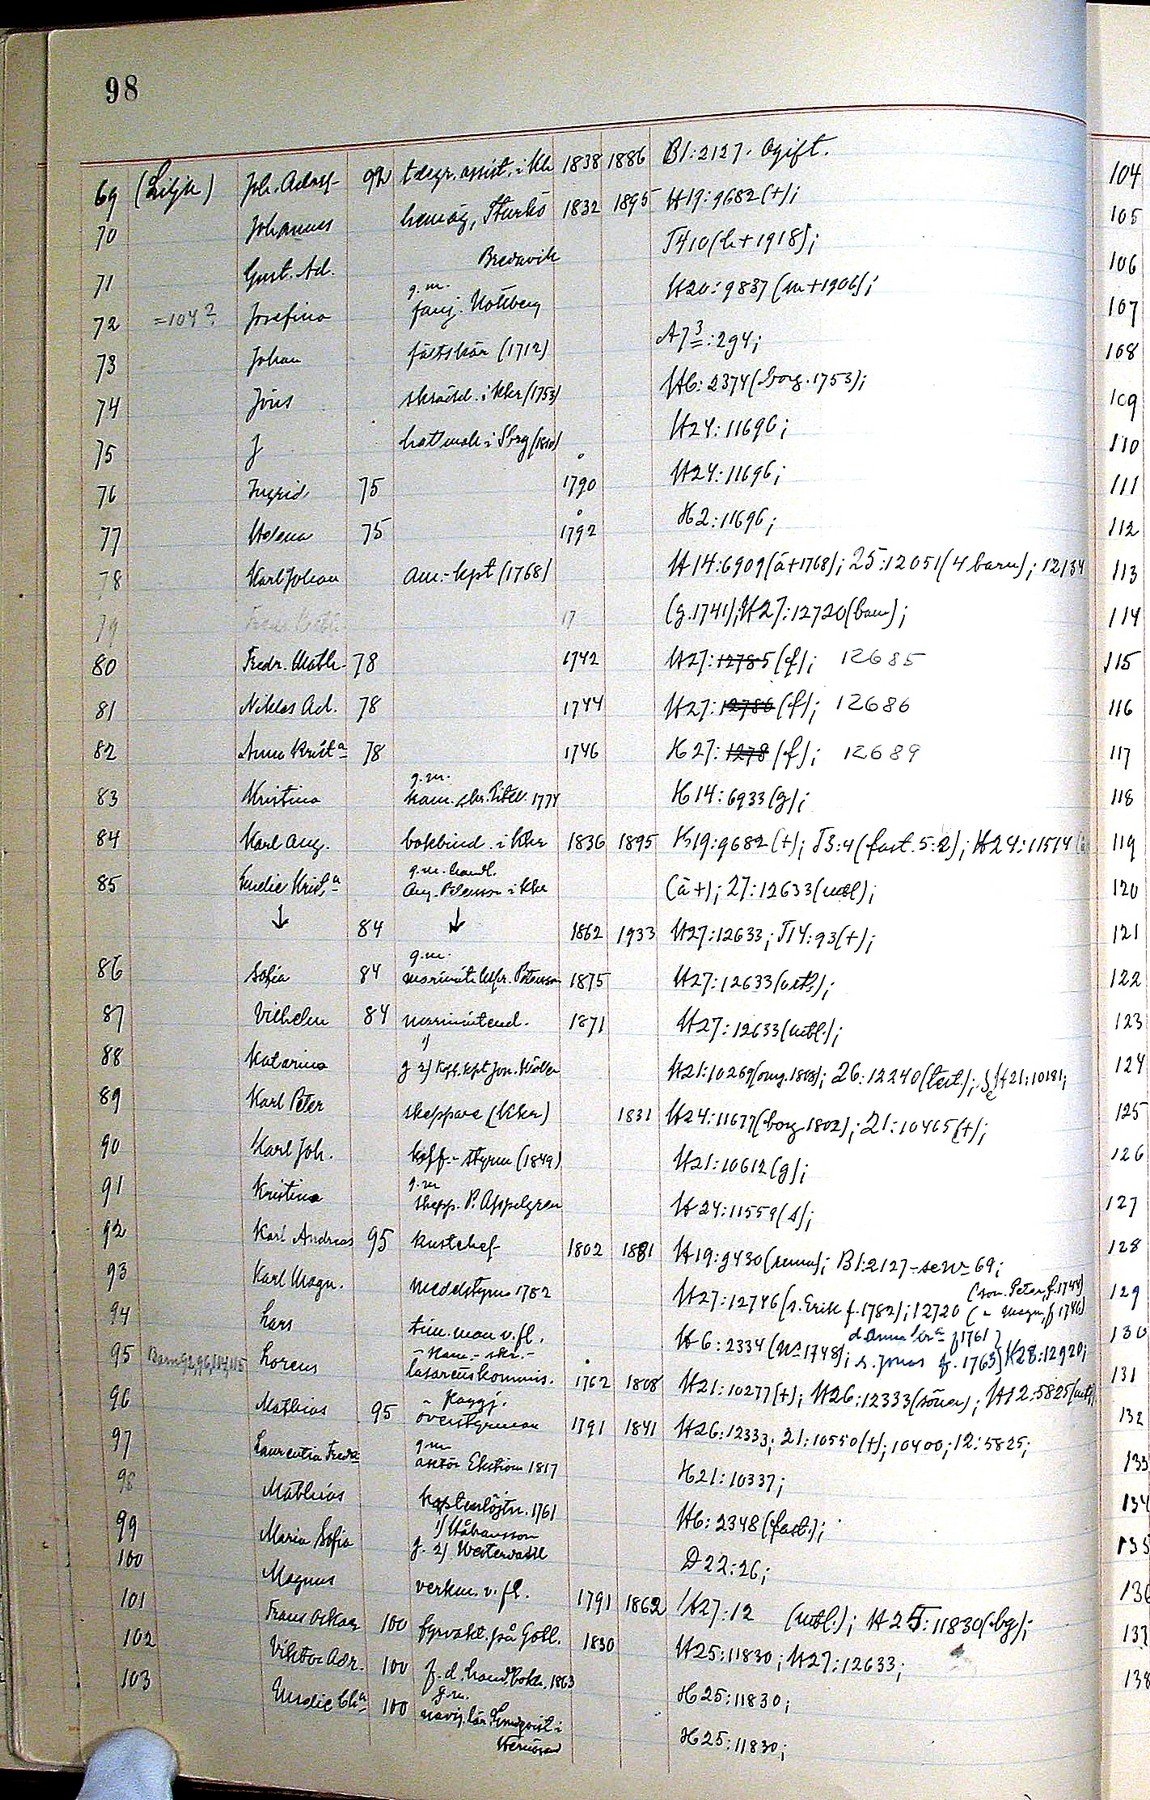 98
69 (Lilje) Joh. Adolf 92 telegr. assist. i Kkr 1838 1886 B1:2127. Ogift.
70 Johannes hemäg, Sturkö 1832 1895 H19:9682(+);
Bredavik
71 Gust. Ad. J410(h+1918);
g.m.
72 =104? Josefina fanj. Holtberg H20:9837(m+1906);
73 Johan fältskär (1712) A7³:294;
74 Jöns skrädd. i Kkr (1753) H6:2374(borg.1753);
75 J hattmak i Sbg (1810) H24:11696;
76 Ingrid 75 1790 H24:11696;
77 Helena 75 1792 H2:11696;
78 Karl Johan am.-kpt (1768) H14:6909(ä+1768); 25:12051(4 barn); 12134
79 17 (g.1741); H27:12720(barn);
80 Fredr. Math. 78 1742 H27:12785(f); 12685
81 Niklas Ad. 78 1744 H27:12786(f); 12686
82 Anna Krist:a 78 1746 H27:1278(f); 12689
g.m.
83 Kristina kam. skr. 1774 H14:6933(g);
84 Karl Aug. bokbind. i Kkr 1836 1895 H19:9682(+); J3:4(fast.5:2); H24:11574
g.m. handl.
85 Emelie Krist:a Aug. Peterson i Kkr (ä+); 27:12633(utbl);
↓ 84 ↓ 1862 1933 H27:12633; J14:93(+);
g.m.
86 Sofia 84 Peterson 1875 H27:12633(utbl.);
87 Vilhelm 84 1871 H27:12633(utbl.);
1)
88 Katarina g 2) Koff.kpt Jon. H21:10269; 26:12240(test); H21:10181;
89 Karl Peter skeppare (Kkr) 1831 H24:11677(borg 1802); 21:10465(+);
90 Karl Joh. koff.-styrm (1849) H21:10612(g);
g.m
91 Kristina skepp. P. Appelgren H24:11559(s);
92 Karl Andreas 95 kustchef 1802 1881 H19:9430; B1:2127-se nr 69;
93 Karl Magn. medelstyrm 1782 H27:12746(s. Erik f.1782); 12720 (son. Peter f.1744)
(" Magn. f 1746)
94 Lars tim.man v. fl. H6:2334(nr 1748); d. Anna f1761
s. Jonas f. 1763) H28:12920;
95 Barn 92,96,114,115 Lorens lasarettskommis. 1762 1808 H21:10277(+); H26:12333(söner); H12:5825
96 Mathias 95 överstyrman 1791 1841 H26:12333; 21:10550(+); 10400; 12:5825;
gm
97 Laurentia Fredr:a Ekström 1817 H21:10337;
98 Mathias 1761 H6:2348(fast.);
1) Håkansson
99 Maria Sofia g. 2) Westerdahl D22:26;
100 Magnus verkm. v. fl. 1791 1862 H27:12 (utbl.); H25:11830(bg);
101 Frans Oskar 100 fyrvakt. på Gotl. 1830 H25:11830; H27:12633;
102 Viktor Adr. 100 f. d. 1863 H25:11830;
g.m.
103 Emelie Ch:a 100 navig. lär Lindqvist i H25:11830;
Hernösand
104
105
106
107
108
109
110
111
112
113
114
115
116
117
118
119
120
121
122
123
124
125
126
127
128
129
130
131
132
133
134
135
136
137
138